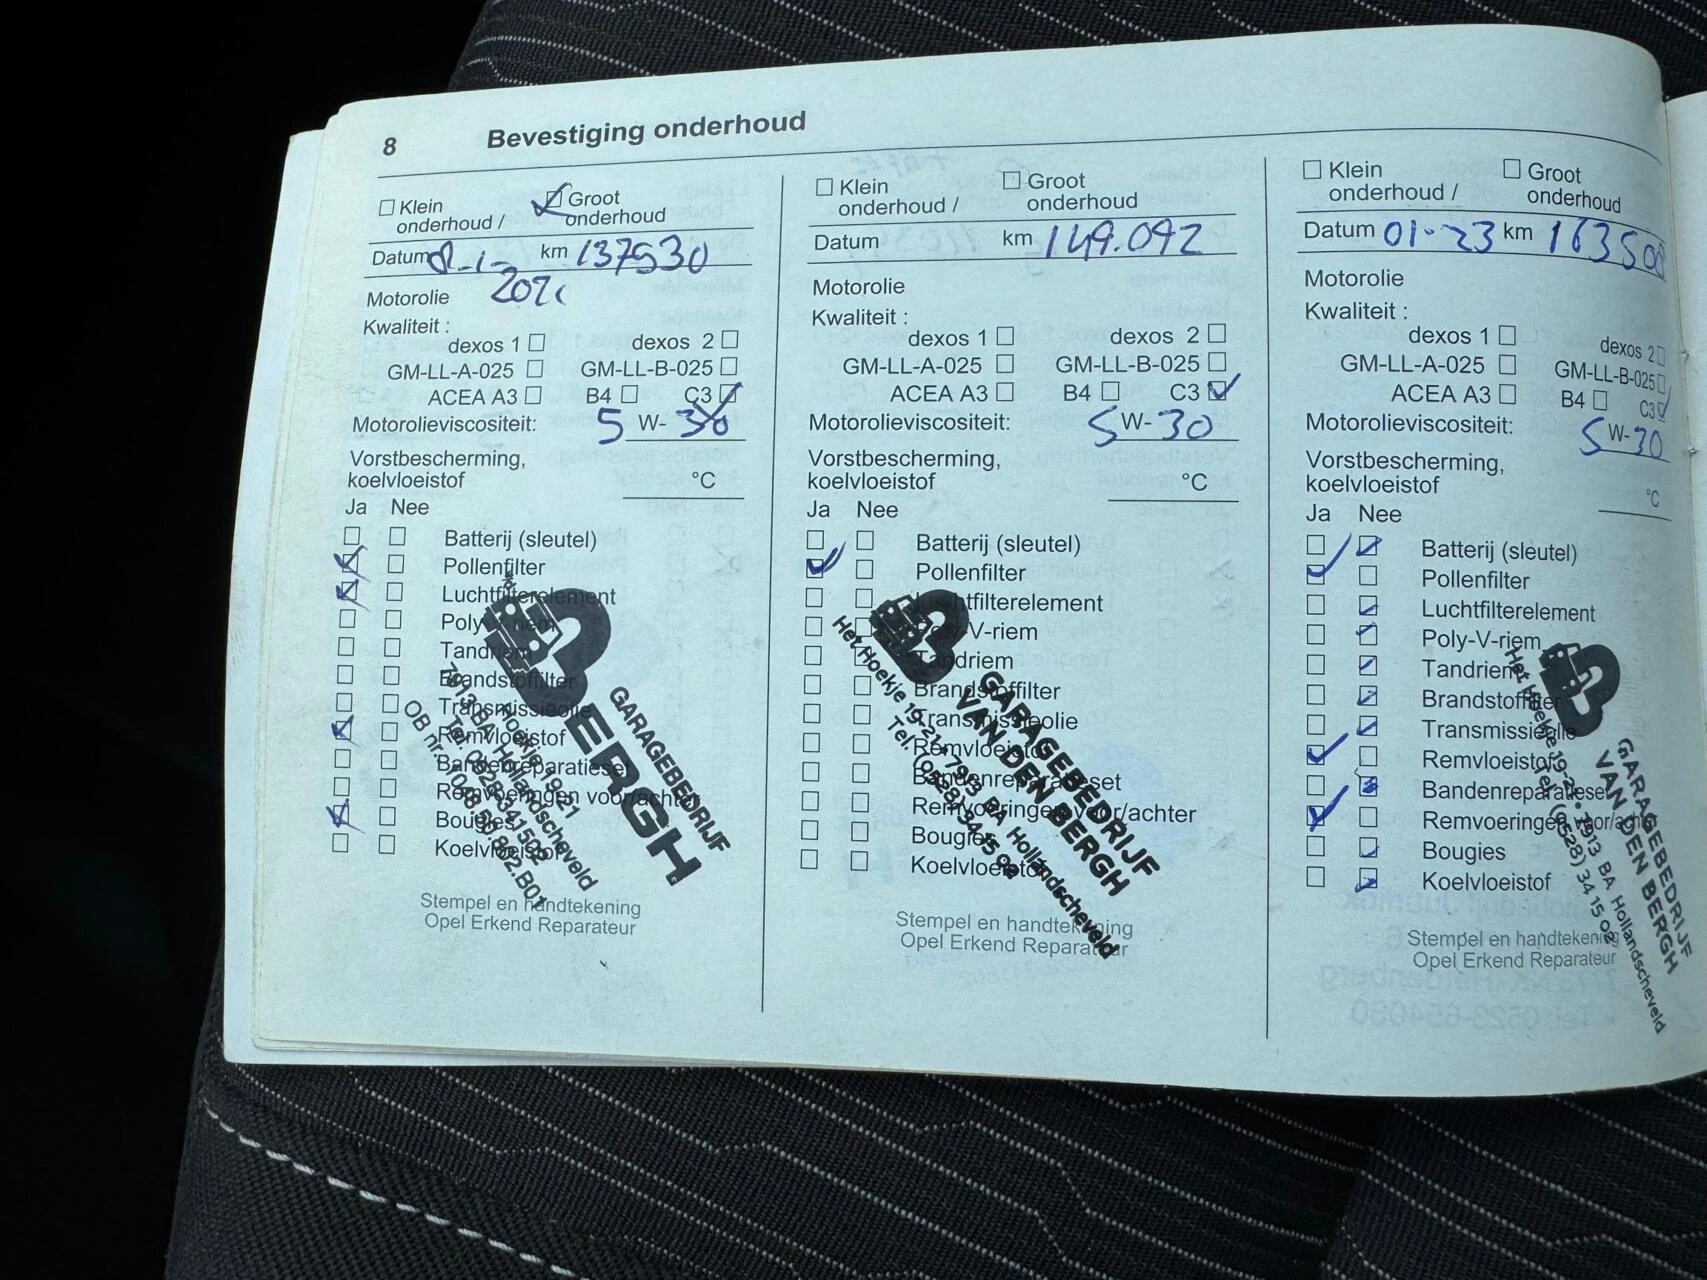 8 Bevestiging onderhoud
Klein onderhoud /
Groot onderhoud
Datum 8-1- km 137530
Motorolie
Kwaliteit :
dexos 1 dexos 2
GM-LL-A-025 GM-LL-B-025
ACEA A3 B4 C3
Motorolieviscositeit: 5 W- 30
Vorstbescherming,
koelvloeistof °C
Ja Nee
Batterij (sleutel)
Pollenfilter
Luchtfilterelement
Poly-V-riem
Tandriem
Brandstoffilter
Transmissieolie
Remvloeistof
Bandenreparatieset
Remvoeringen voor/achter
Bougies
Koelvloeistof
GARAGEBEDRIJF
BERGH
7913 BA Hollandscheveld
Stempel en handtekening
Opel Erkend Reparateur
Klein onderhoud /
Groot onderhoud
Datum km 149.092
Motorolie
Kwaliteit :
dexos 1 dexos 2
GM-LL-A-025 GM-LL-B-025
ACEA A3 B4 C3
Motorolieviscositeit: 5 W- 30
Vorstbescherming,
koelvloeistof °C
Ja Nee
Batterij (sleutel)
Pollenfilter
Luchtfilterelement
Poly-V-riem
Tandriem
Brandstoffilter
Transmissieolie
Remvloeistof
Bandenreparatieset
Remvoeringen voor/achter
Bougies
Koelvloeistof
GARAGEBEDRIJF
VAN DEN BERGH
Het Hoekje 19-21 - 7913 BA Hollandscheveld
Tel. (0528) 34 15 02
Stempel en handtekening
Opel Erkend Reparateur
Klein onderhoud /
Groot onderhoud
Datum 01-23 km 163500
Motorolie
Kwaliteit :
dexos 1 dexos 2
GM-LL-A-025 GM-LL-B-025
ACEA A3 B4 C3
Motorolieviscositeit: 5 W- 30
Vorstbescherming,
koelvloeistof °C
Ja Nee
Batterij (sleutel)
Pollenfilter
Luchtfilterelement
Poly-V-riem
Tandriem
Brandstoffilter
Transmissieolie
Remvloeistof
Bandenreparatieset
Remvoeringen voor/achter
Bougies
Koelvloeistof
GARAGEBEDRIJF
VAN DEN BERGH
Het Hoekje 19-21 - 7913 BA Hollandscheveld
Tel. (0528) 34 15 02
Stempel en handtekening
Opel Erkend Reparateur